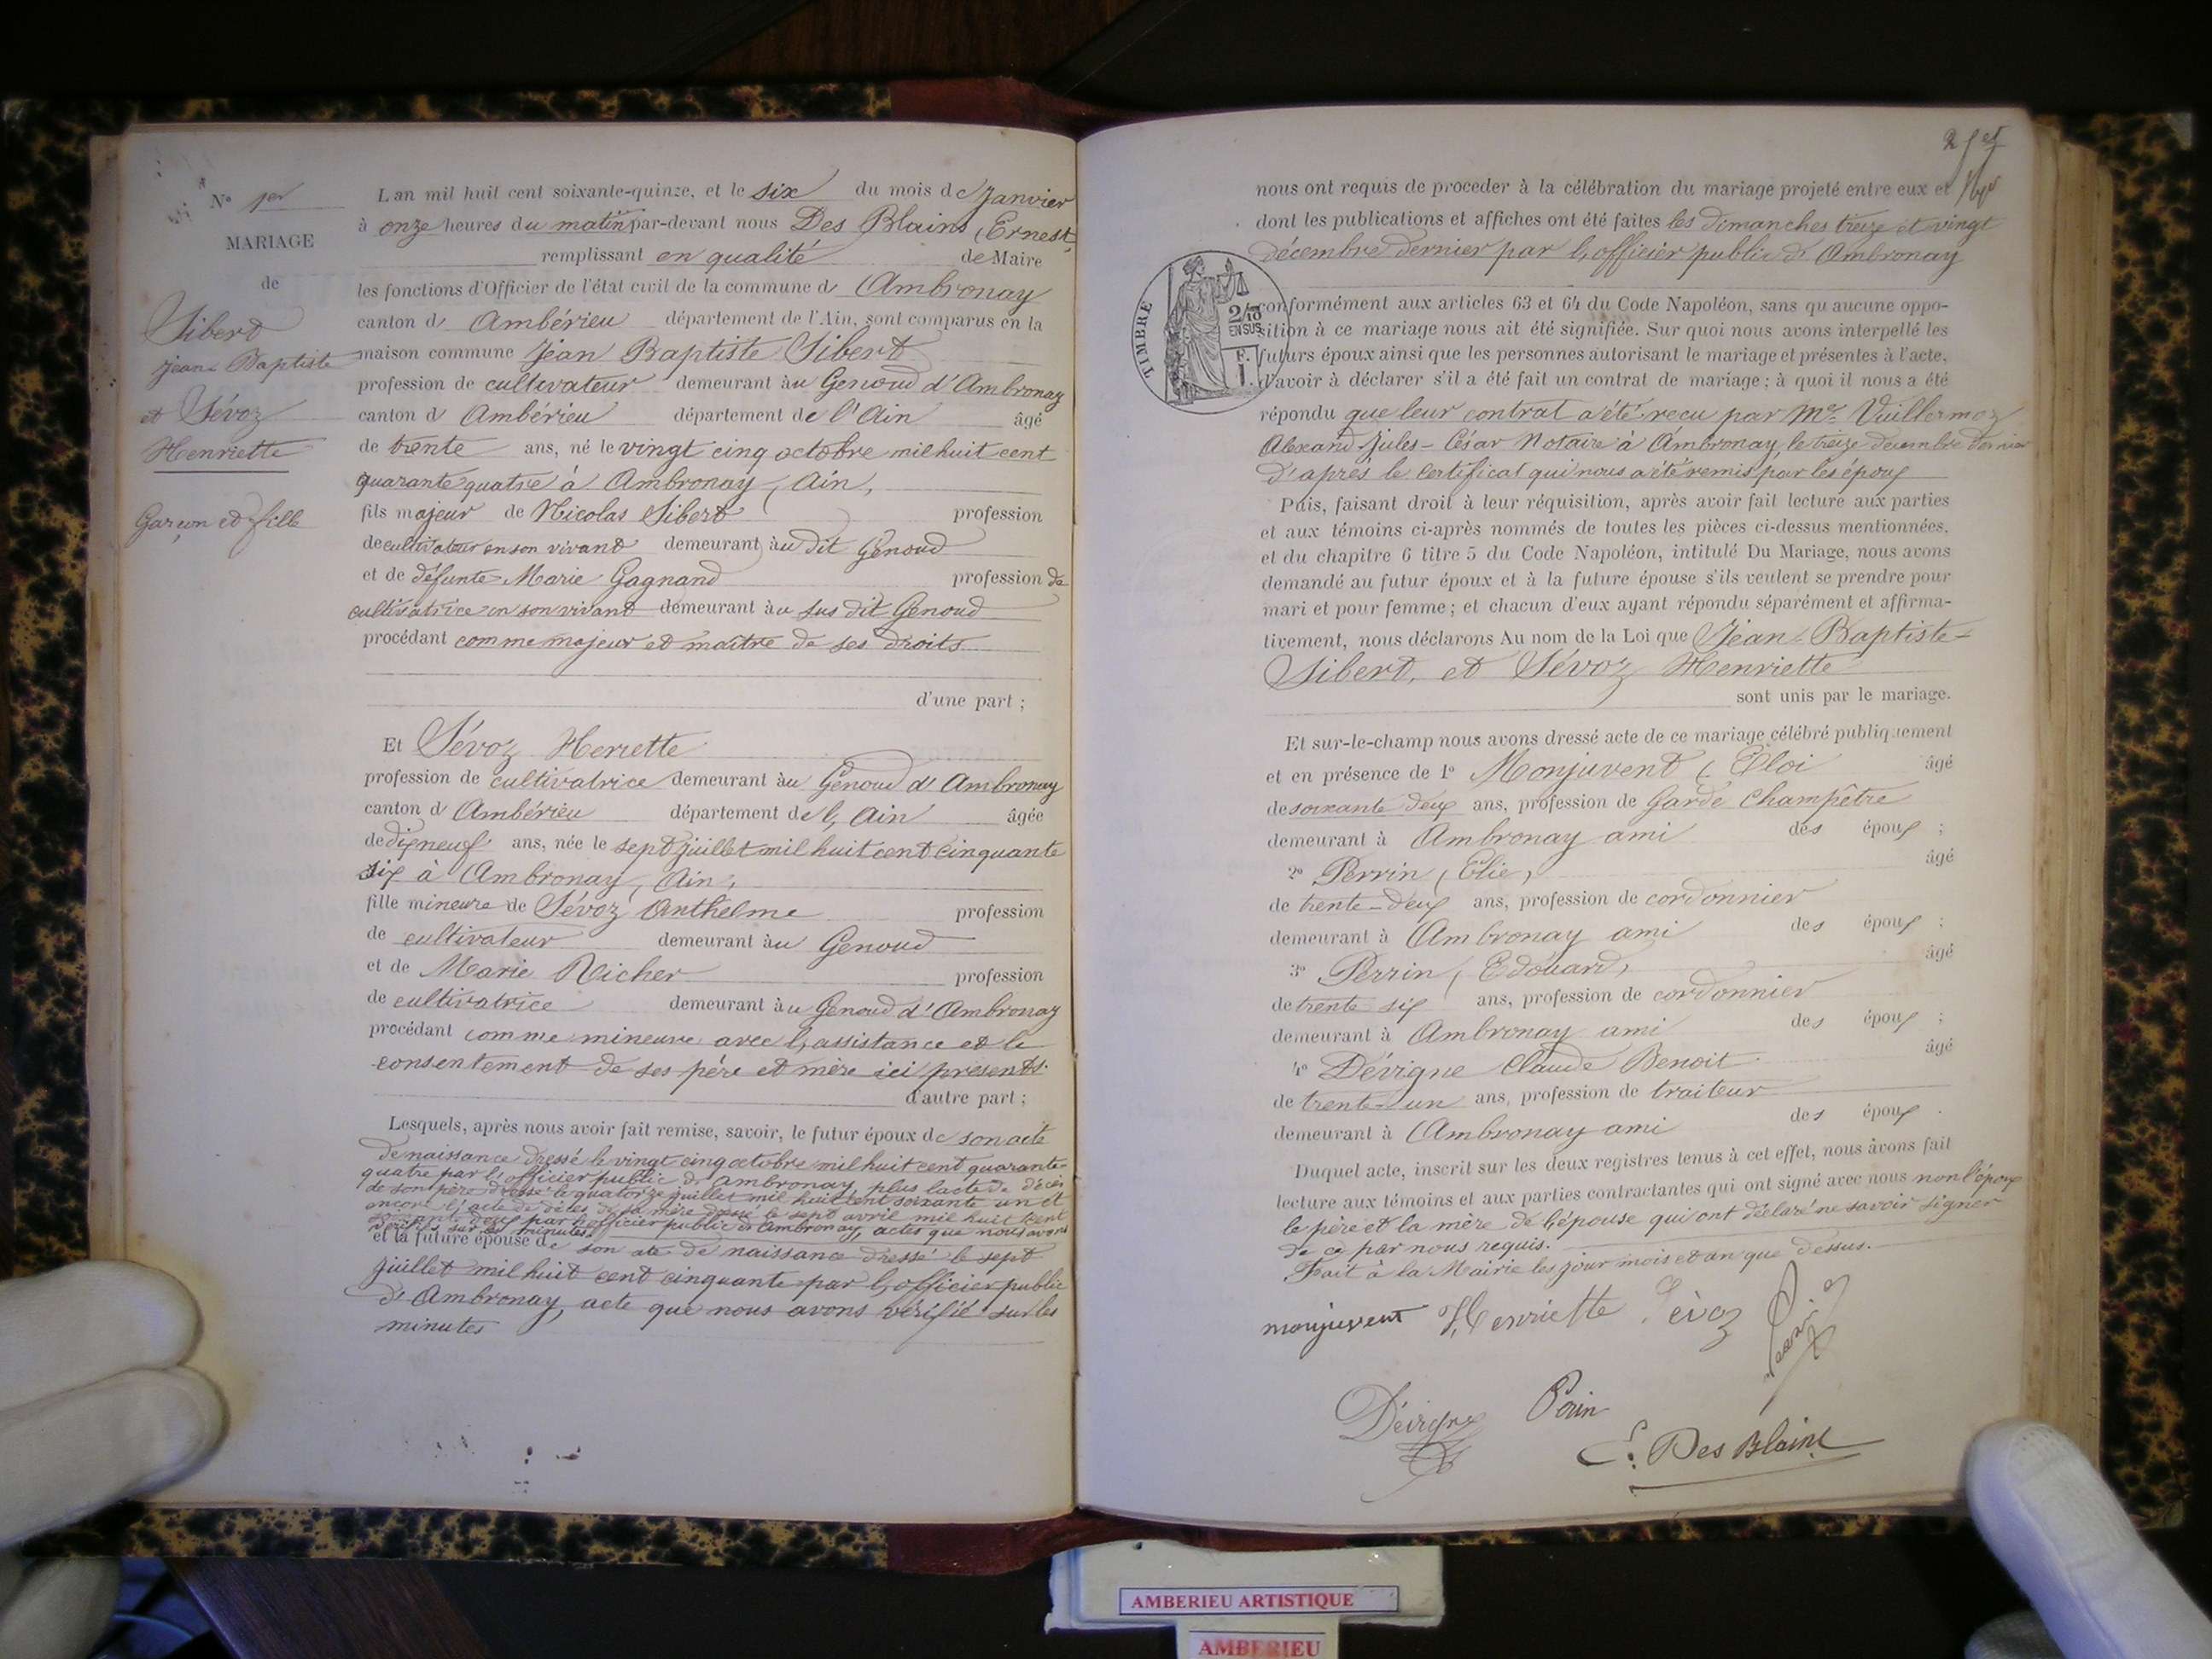 N° 1er
MARIAGE
de
Sibert
Jean-Baptiste
et Sévoz
Henriette
Garçon et fille
L'an mil huit cent soixante-quinze, et le six du mois de Janvier
à onze heures du matin par-devant nous Des Blains, Ernest,
remplissant en qualité de Maire
les fonctions d'Officier de l'état civil de la commune d Ambronay
canton d Ambérieu département de l'Ain, sont comparus en la
maison commune Jean Baptiste Sibert
profession de cultivateur demeurant àu Genoud d'Ambronay
canton d Ambérieu département de l'Ain âgé
de trente ans, né le vingt cinq octobre mil huit cent
quarante quatre à Ambronay, Ain,
fils majeur de Nicolas Sibert profession
de cultivateur en son vivant demeurant àu dit Genoud
et de défunte Marie Gagnand profession de
cultivatrice en son vivant demeurant àu sus dit Genoud
procédant comme majeur et maître de ses droits
d'une part ;
Et Sévoz Heriette
profession de cultivatrice demeurant àu Genoud d'Ambronay
canton d Ambérieu département de l, Ain âgée
de dixneuf ans, née le sept juillet mil huit cent cinquante
six à Ambronay, Ain,
fille mineure de Sévoz Anthelme profession
de cultivateur demeurant àu Genoud
et de Marie Richer profession
de cultivatrice demeurant àu Genoud d'Ambronay
procédant comme mineure avec l, assistance et le
consentement de ses père et mère ici présents.
d'autre part ;
Lesquels, après nous avoir fait remise, savoir, le futur époux de son acte
de naissance dressé le vingt cinq octobre mil huit cent quarante-
quatre par l'officier public d'Ambronay, plus l'acte de décès
de son père dressé le quatorze juillet mil huit cent soixante un et
encore l, acte de décès de sa mère dressé le sept avril mil huit cent
soixante deux par l'officier public d'Ambronay, actes que nous avons
vérifiés sur les minutes.
et la future épouse de son ate de naissance dressé le sept
juillet mil huit cent cinquante par l, officier public
d'Ambronay, acte que nous avons vérifié sur les
minutes
nous ont requis de proceder à la célébration du mariage projeté entre eux et
dont les publications et affiches ont été faites les dimanches treize et vingt
décembre dernier par l, officier public d'Ambronay
TIMBRE
2/10
EN SUS
F.
1.
conformément aux articles 63 et 64 du Code Napoléon, sans qu aucune oppo-
sition à ce mariage nous ait été signifiée. Sur quoi nous avons interpellé les
futurs époux ainsi que les personnes autorisant le mariage et présentes à l'acte,
d'avoir à déclarer s'il a été fait un contrat de mariage ; à quoi il nous a été
répondu que leur contrat a été recu par Me. Vuillermoz
Alexand Jules-César Notaire à Ambronay, le treize decembre dernier
d'après le certificat qui nous a été remis par les époux
Puis, faisant droit à leur réquisition, après avoir fait lecture aux parties
et aux témoins ci-après nommés de toutes les pièces ci-dessus mentionnées,
et du chapitre 6 titre 5 du Code Napoléon, intitulé Du Mariage, nous avons
demandé au futur époux et à la future épouse s'ils veulent se prendre pour
mari et pour femme ; et chacun d'eux ayant répondu séparément et affirma-
tivement, nous déclarons Au nom de la Loi que Jean-Baptiste-
Sibert, et Sévoz Henriette
sont unis par le mariage.
Et sur-le-champ nous avons dressé acte de ce mariage célébré publiquement
et en présence de 1° Monjuvent, Eloi âgé
de soixante deux ans, profession de Garde Champêtre
demeurant à Ambronay ami des époux ;
2° Perrin, Elie, âgé
de trente-deux ans, profession de cordonnier
demeurant à Ambronay ami des époux ;
3° Perrin, Edouard, âgé
de trente six ans, profession de cordonnier
demeurant à Ambronay ami des époux ;
4° Dévigne Claude Benoit âgé
de trente-un ans, profession de traiteur
demeurant à Ambronay ami des époux .
Duquel acte, inscrit sur les deux registres tenus à cet effet, nous avons fait
lecture aux témoins et aux parties contractantes qui ont signé avec nous non l'époux
le père et la mère de l'épouse qui ont déclaré ne savoir signer
de ce par nous requis.
Fait à la Mairie les jour mois et an que dessus.
monjuvent Henriette Sévoz
Dévigne Perrin
E. Des Blains
AMBERIEU ARTISTIQUE
AMBERIEU